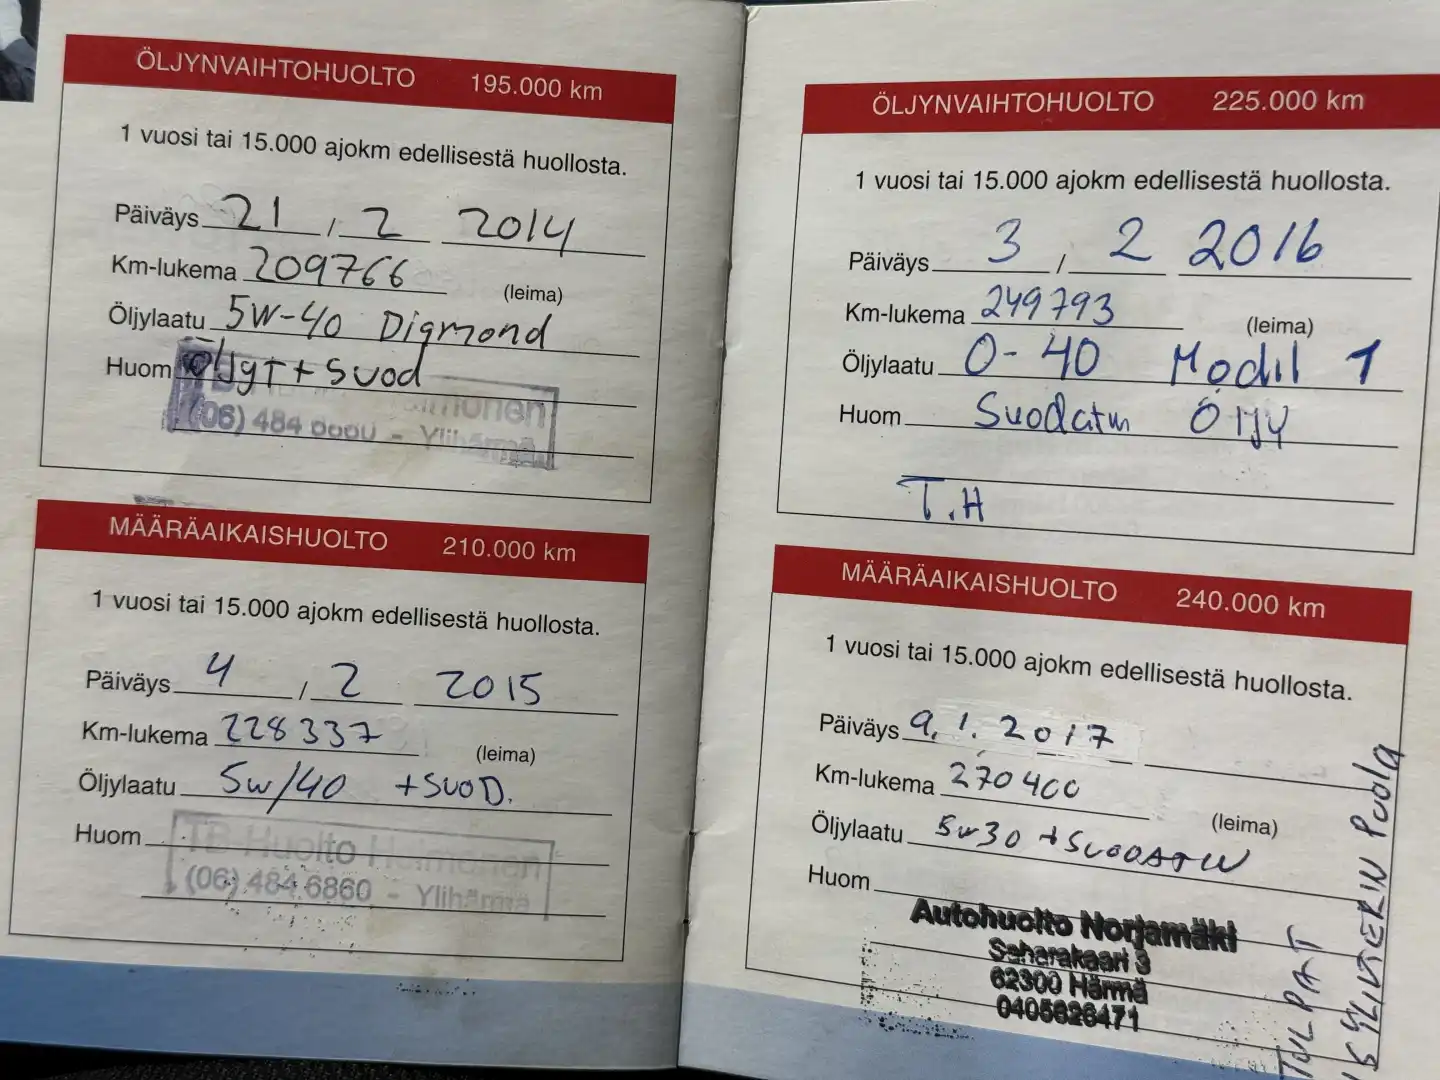 ÖLJYNVAIHTOHUOLTO 195.000 km
1 vuosi tai 15.000 ajokm edellisestä huollosta.
Päiväys 21 / 2 2014
Km-lukema 209766
(leima)
Öljylaatu 5W-40 Digmond
Huom Öljyt + suod
(06) 484 - Ylihärmä
MÄÄRÄAIKAISHUOLTO 210.000 km
1 vuosi tai 15.000 ajokm edellisestä huollosta.
Päiväys 4 / 2 2015
Km-lukema 228337
(leima)
Öljylaatu 5w/40 +SUOD.
Huom
TB Huolto Holmonen
(06) 484 6860 - Ylihärmä
ÖLJYNVAIHTOHUOLTO 225.000 km
1 vuosi tai 15.000 ajokm edellisestä huollosta.
Päiväys 3 / 2 2016
Km-lukema 249793
(leima)
Öljylaatu 0-40 Mobil 1
Huom Suodatin Öljy
T.H
MÄÄRÄAIKAISHUOLTO 240.000 km
1 vuosi tai 15.000 ajokm edellisestä huollosta.
Päiväys 9.1.2017
Km-lukema 270400
(leima)
Öljylaatu 5w30 + SUODATIN
Huom
Autohuolto Norjamäki
Saharakaari 3
62300 Härmä
0405626471
TULPAT
SYLINTERIN Puola